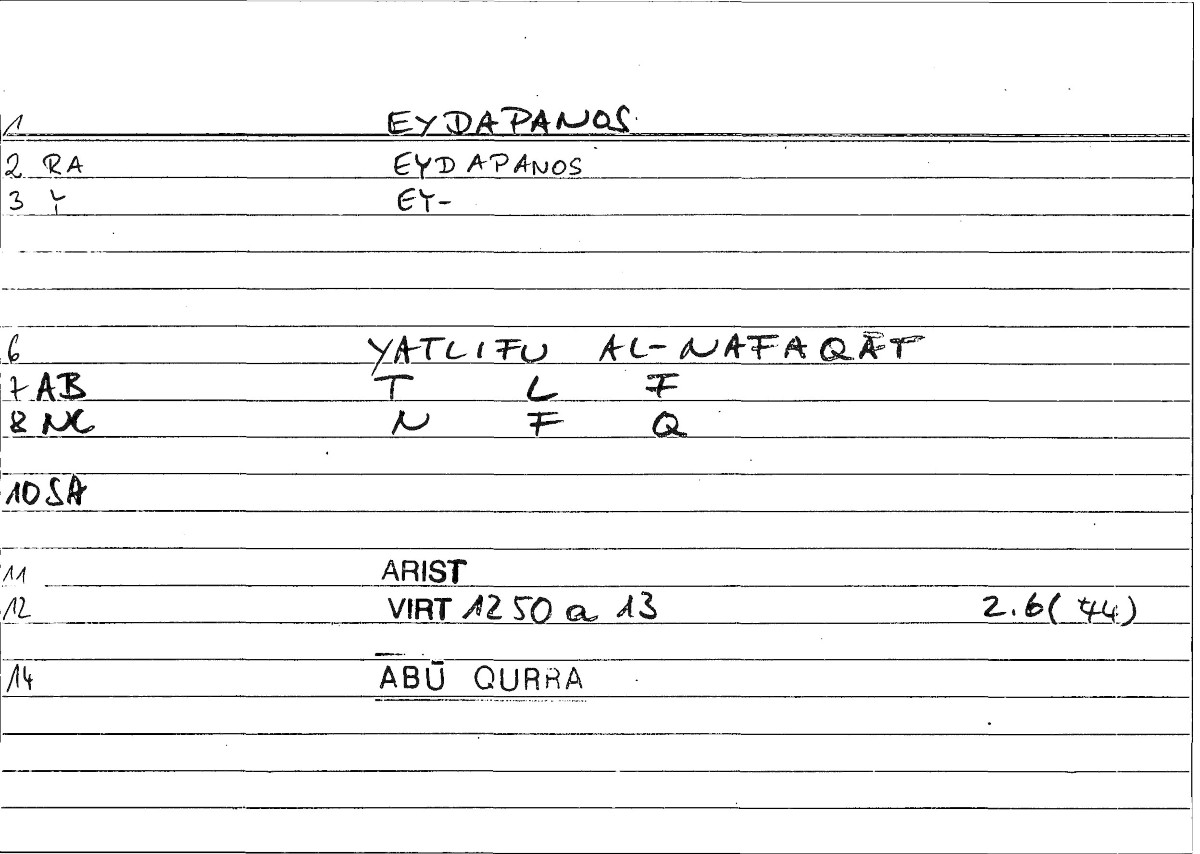 1 EYDAPANOS
2 RA EYDAPANOS
3 Y EY-
6 YATLIFU AL-NAFAQĀT
7 AB T L F
8 NC N F Q
10 SA
11 ARIST
12 VIRT 1250 a 13 2.6(44)
14 ABŪ QURRA